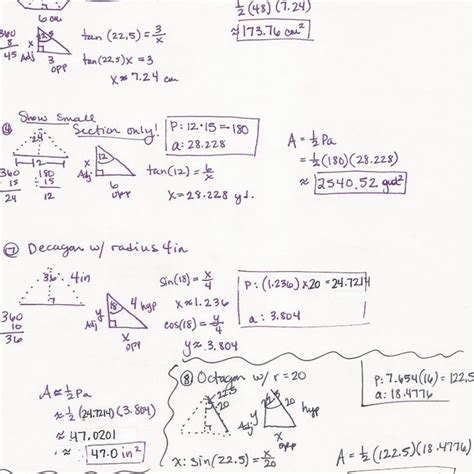 6cm
360
8
45
x
Adj
22.5
3
opp
tan(22.5) = 3/x
tan(22.5)x = 3
x ≈ 7.24 cm
½(48)(7.24)
≈ 173.76 cm²
⑥ Show small
Section only!
24
12
360
÷ 15
24
180
÷ 15
12
x
Adj
12
6
opp
P: 12·15 = 180
a: 28.228
tan(12) = 6/x
x = 28.228 yd.
A = ½Pa
= ½(180)(28.228)
≈ 2540.52 yd²
⑦ Decagon w/ radius 4in
36
4in
?
360
10
36
y
Adj
18
4 hyp
x
opp
sin(18) = x/4
x ≈ 1.236
cos(18) = y/4
y ≈ 3.804
P: (1.236)x20 = 24.7214
a: 3.804
A ≈ ½Pa
≈ ½(24.7214)(3.804)
≈ 47.0201
≈ 47.0 in²
⑧ Octagon w/ r = 20
22.5
20
y
Adj
22.5
20
hyp
x
opp
x: sin(22.5) = x/20
P: 7.654(16) = 122.5
a: 18.4776
A = ½(122.5)(18.4776)